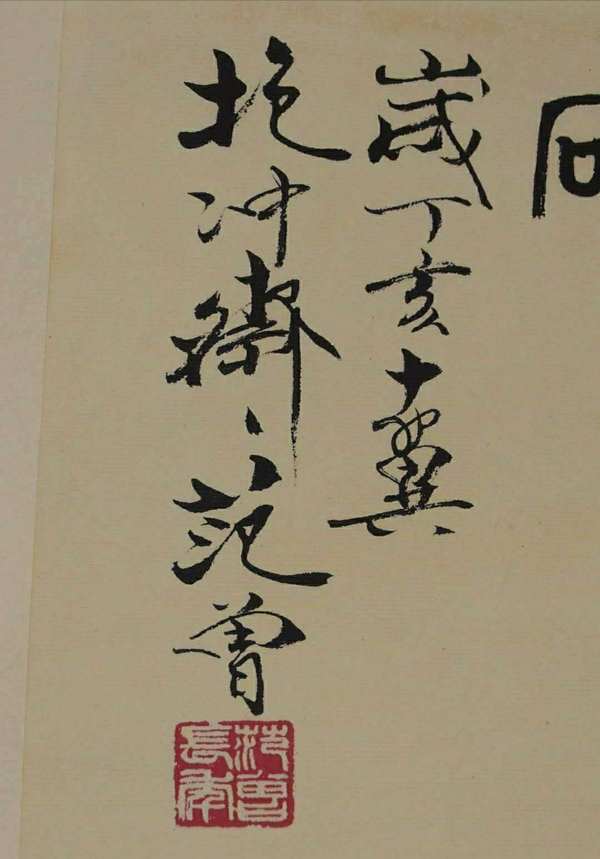 歲丁亥十翼
抱冲齋范曾
范曾
長年